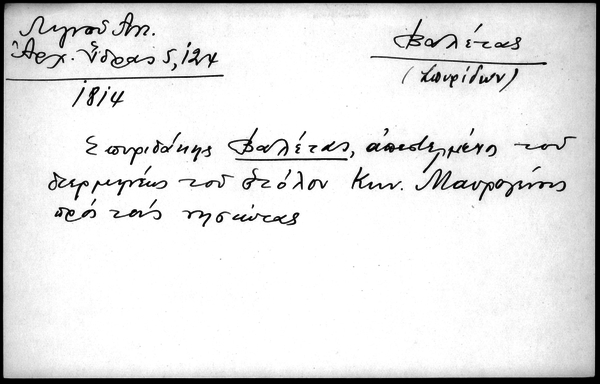 Λιγνοῦ Ἀπ.
Ἀρχ. Ὕδρας 5, 124
1814
Βαλέτας
(Σπυρίδων)
Σπυριδάκης Βαλέτας, ἀπεσταλμένος τοῦ
διερμηνέως τοῦ στόλου Κων. Μαυρογένης
πρός τούς νησιώτας